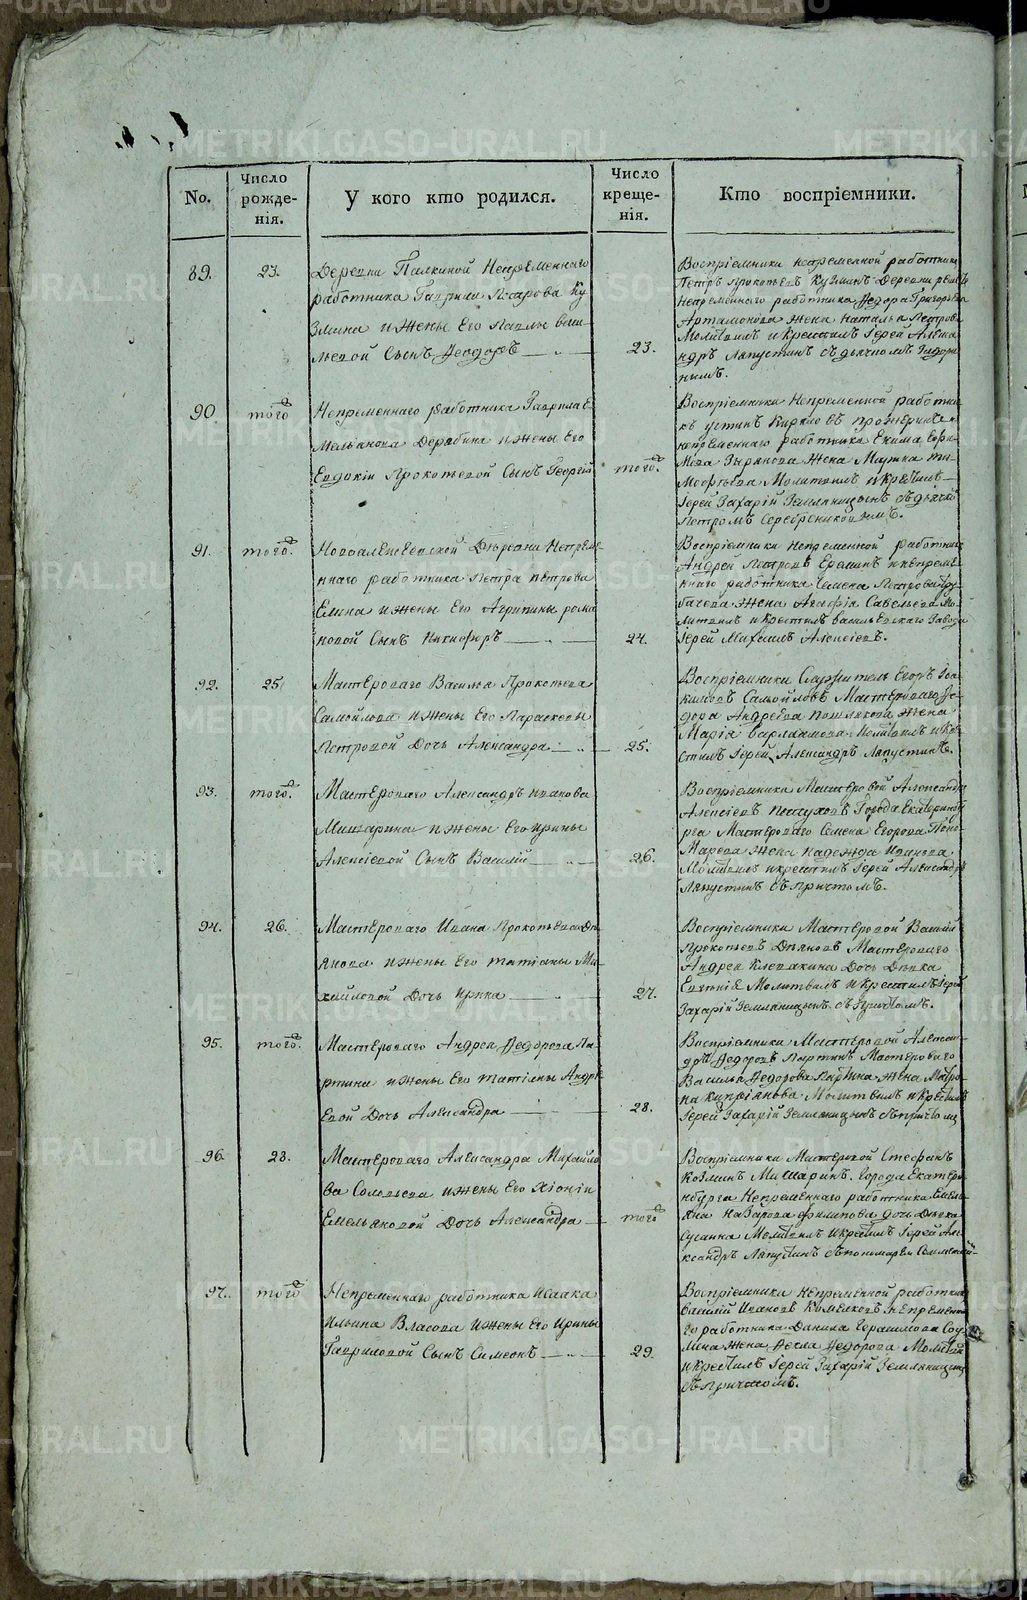 No.
Число рожде-
нія.
У кого кто родился.
Число
креще-
нія.
Кто воспріемники.
89.
23.
Деревни Палкиной Непременнаго
работника Гаврила Назарова Ку
змина и жены Его Павлы васи
льевой Сынъ Феодоръ
23.
Воспріемники непременной работникъ
Петръ Прокопьевъ Кузминъ Деревни
Непременнаго работника Федора Григорьева
Артамонова Жена Наталья Петрова
Молитвилъ и Крестилъ Іерей Алекса
ндръ Ляпустинъ съ дьячкомъ Сидори
нымъ.
90.
того
Непременнаго работника Гаврила Е
мельянова Дерябина и жены Его
Евдокіи Прокопьевой Сынъ Георгій
того.
Воспріемники Непременной работни
къ устинъ Кириловъ
непременнаго работника Екима Ефи
мова Зырянова Жена Марѳа ти
мофѣева Молитвилъ и Крестилъ
Іерей Захарій Земляницынъ съ дьячкомъ
Петромъ Серебрениковымъ.
91.
того.
Новоалексеевской Деревни Непреме
ннаго работника Петра петрова
Елина и жены Его Агрипины рома
новой Сынъ Никифоръ
24.
Воспріемники Непременной работникъ
Андрей Петровъ Ереминъ и непреме
ннаго работника Семена Петрова
Жена Агафія Савельева Мо
литвилъ и Крестилъ васильевскаго Завода
Іерей Михаилъ Алексіевъ.
92.
25
Мастероваго Василья Прокопьева
Самойлова и жены Его Параскевы
Петровой Дочь Александра
25.
Воспріемники Служитель Егоръ Іоа
кимовъ Самойловъ Мастероваго Фе
дора Андреева Жена
Марія Варлаамова Молитвилъ и Кре
стилъ Іерей Александръ Ляпустинъ.
93.
того.
Мастероваго Александръ иванова
Мишарина и жены Его Ирины
Алексіевой Сынъ Василій
26.
Воспріемники Мастеровой Александръ
Алексіевъ Пастуховъ Города Екатеринбу
рга Мастероваго Семена Егорова Поно
марева Жена надежда Иванова
Молитвилъ и крестилъ Іерей Александръ
Ляпустинъ съ Причтомъ.
94.
26.
Мастероваго Ивана Прокопьева Дѣ
янова и жены Его татіаны Ми
хайловой Дочь Ирина
27.
Воспріемники Мастеровой Василій
Прокопьевъ Дѣяновъ Мастероваго
Андрея Клевакина Дочь Дѣвка
Евгенія Молитвилъ и Крестилъ Іерей
Захарій Земляницынъ съ Причтомъ.
95.
того.
Мастероваго Андрея Федорова Па
ртина и жены Его татіаны Андре
евой Дочь Александра
28.
Воспріемники Мастеровой Алексан
дръ Федоровъ Партинъ Мастероваго
Василья Федорова Партина Жена Матро
на Кипріянова Молитвилъ и Крестилъ
Іерей Захарій Земляницынъ съ причтомъ
96
28.
Мастероваго Александра Михайло
ва Соловьева и жены Его Хіоніи
Емельяновой Дочь Александра
того
Воспріемники Мастеровой Стефанъ
Козминъ Мишаринъ. Города Екатери
нбурга Непременнаго работника Емель
яна Назарова Филипова дочь Дѣвка
Сусанна Молитвилъ и Крестилъ Іерей Але
ксандръ Ляпустинъ съ пономарем
97.
того
Непременнаго работника Исаака
Ильина Власова и жены Его Ирины
Гавриловой Сынъ Симеонъ
29.
Воспріемники Непременной работникъ
василій Ивановъ Непременна
го работника Данила Герасимова
Жена Федорова Молитвилъ
и Крестилъ Іерей Захарій Земляницынъ
съ Причтомъ.
METRIKI.GASO-URAL.RU